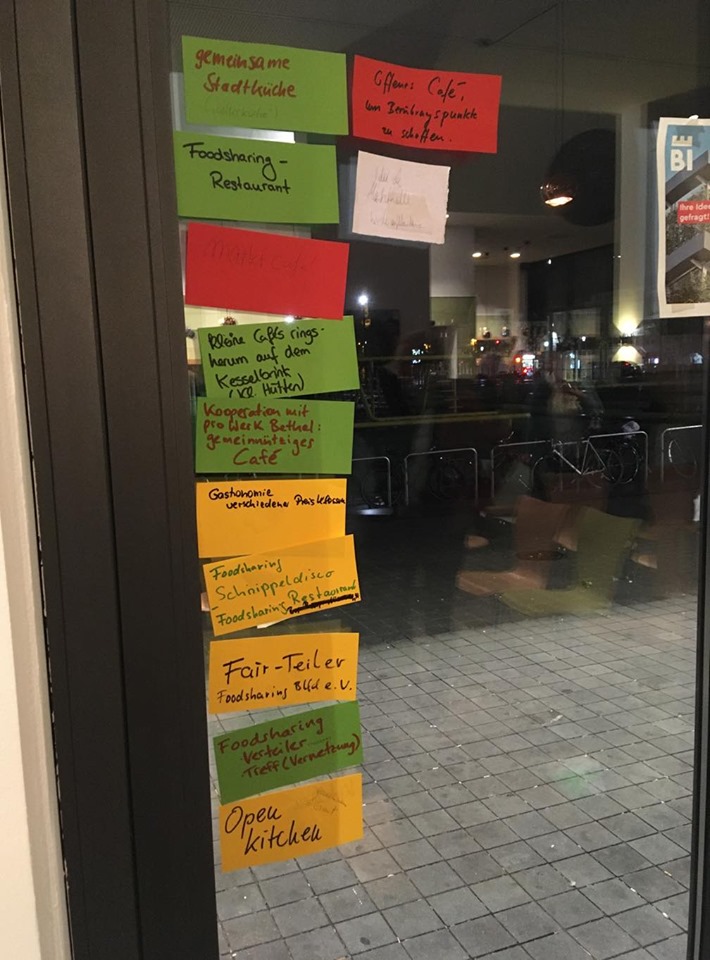 gemeinsame
Stadtküche
Offenes Café,
um Berührungspunkte
zu schaffen.
Foodsharing-
Restaurant
Kleine Cafés rings-
herum auf dem
Kesselbrink
(Kl. Hütten)
Kooperation mit
pro Werk Bethel:
gemeinnütziges
Café
Gastronomie
verschiedener Preisklassen
Foodsharing
Schnippeldisco
- Foodsharing Restaurant
Fair-Teiler
Foodsharing Blfd e.V.
Foodsharing
Verteiler
Treff (Vernetzung)
Open
kitchen
BI
Ihre Idee
gefragt!